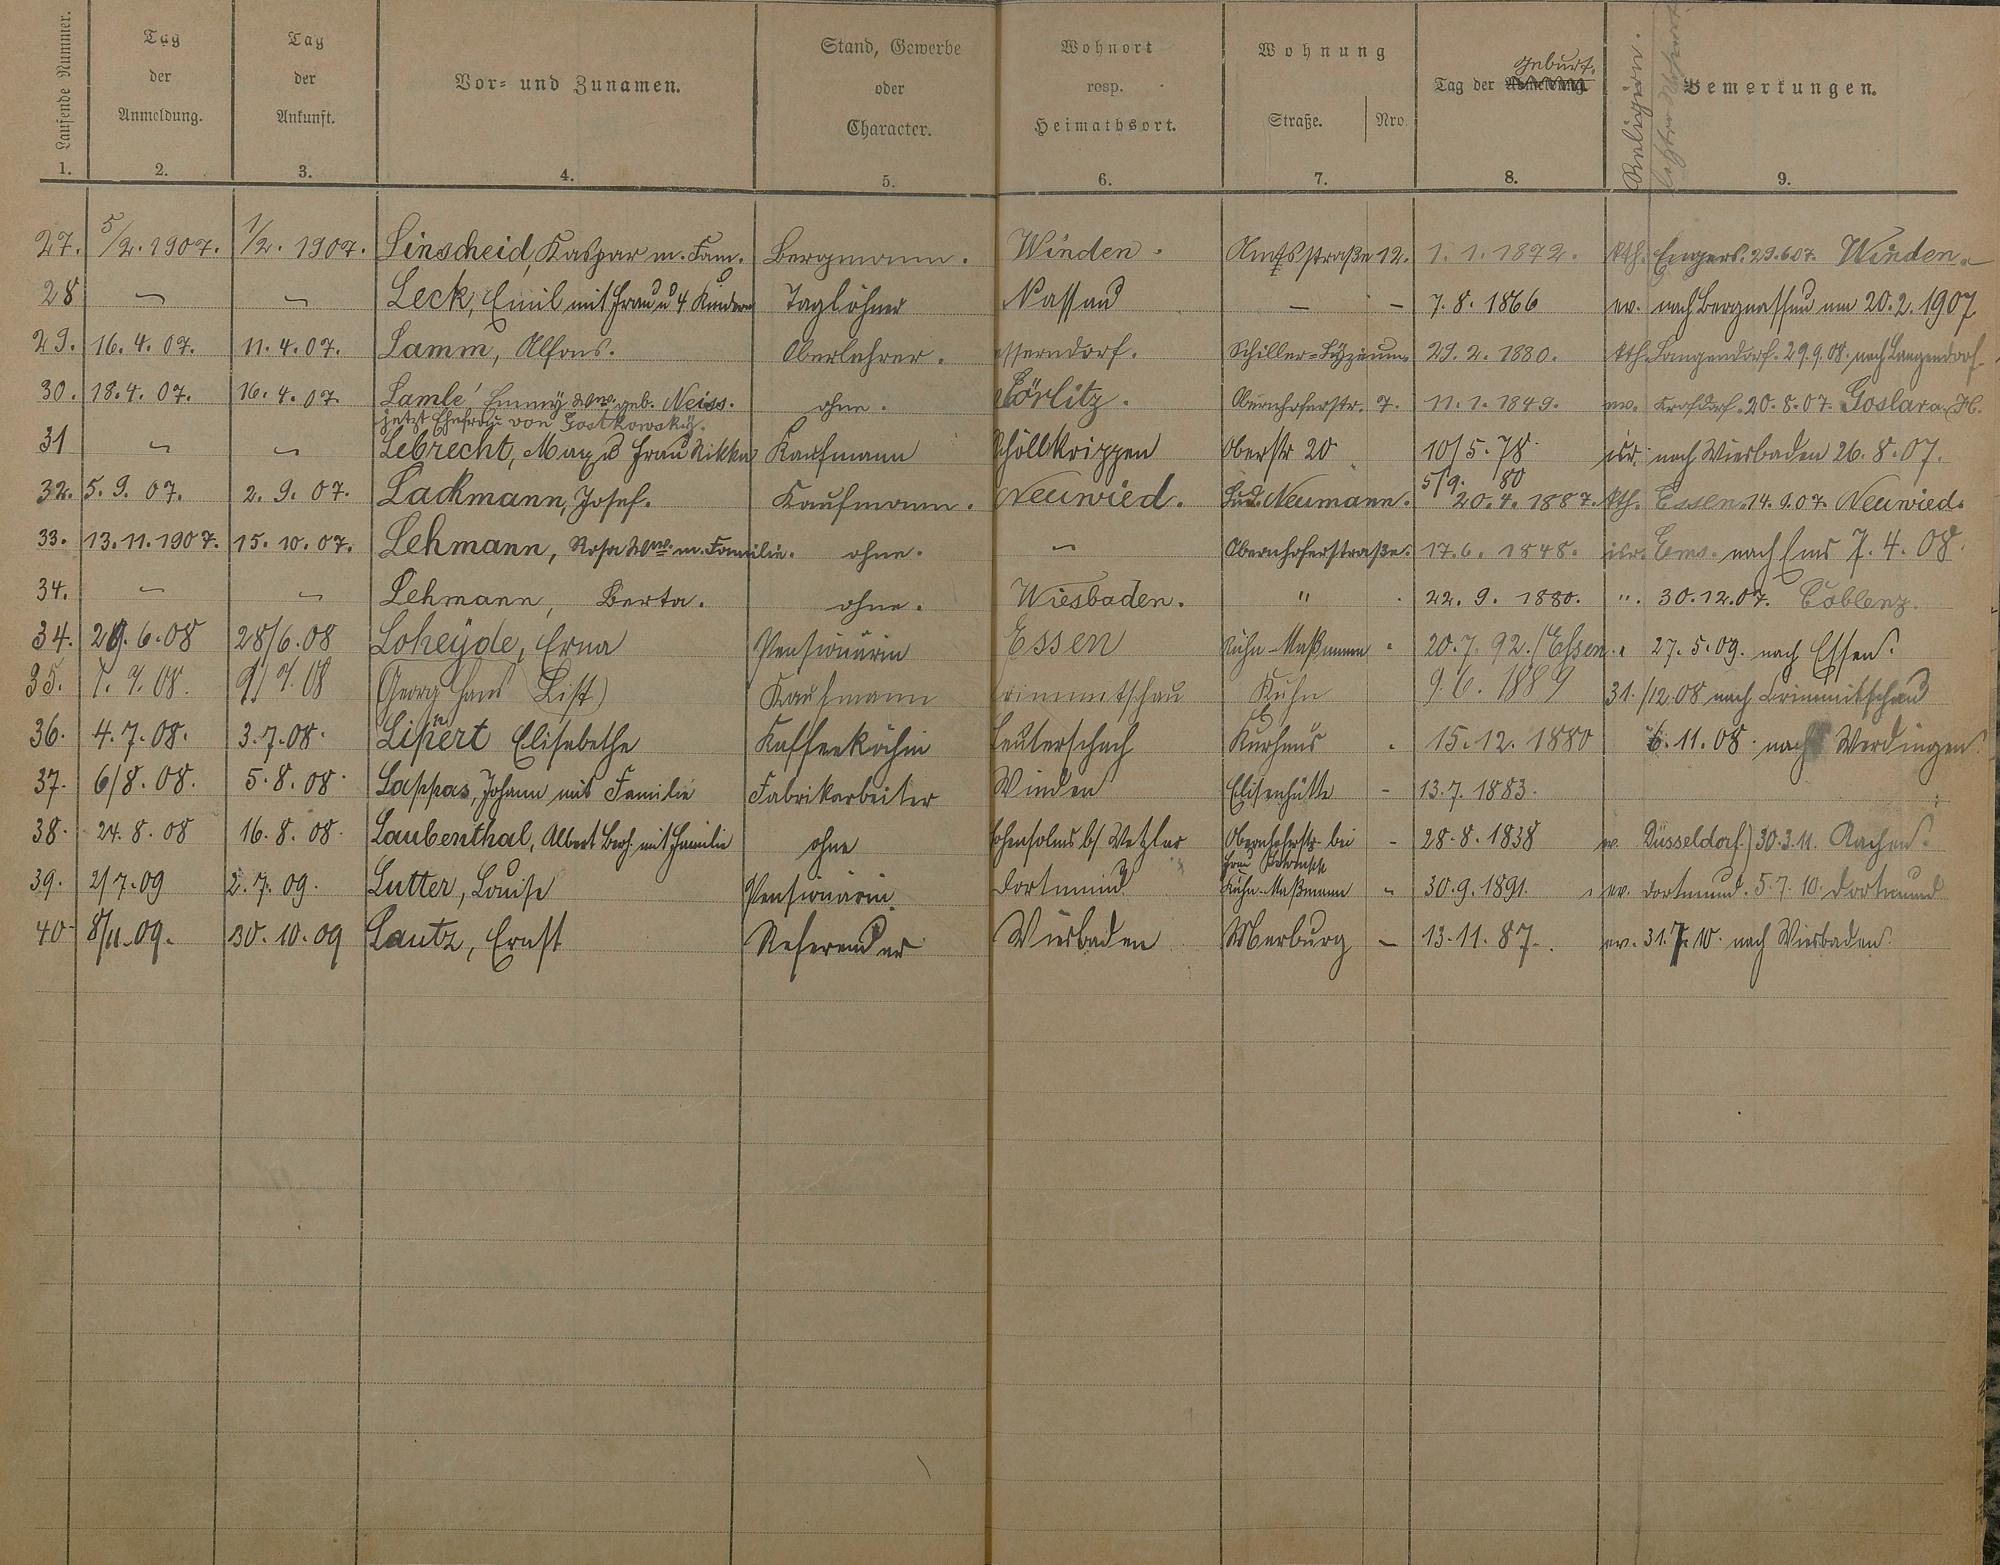 Laufende Nummer. Tag der Anmeldung. Tag der Ankunft. Vor- und Zunamen. Stand, Gewerbe oder Character. Wohnort resp. Heimathsort. Wohnung Straße. Nro. Tag der Geburt. Religion. Bemerkungen.
1. 2. 3. 4. 5. 6. 7. 8. 9.
27. 5/2. 1907. 1/2. 1907. Linscheid, Kaspar m. Fam. Bergmann. Winden. Amtsstraße 12. 1. 1. 1872. kth. Engers. 29.6.07. Winden.
28 Leck, Emil mit Frau u 4 Kindern Taglöhner Nassau — – 7. 8. 1866 ev. nach Bergnassau am 20.2.1907
29. 16. 4. 07. 11. 4. 07. Lamm, Alfons. Oberlehrer. Schiller=Lyzeum. 29. 2. 1880. kth. Langendorf. 29.9.08. nach Langendorf.
30. 18. 4. 07. 16. 4. 07. Lamlé, Emmy Wwe. geb. Neiss. ohne. Görlitz. Obernhoferstr. 7. 11. 1. 1849. ev. 20.8.07. Goslar a. H.
jetzt Ehefrau von Gostkowsky.
31 Lebrecht, Max u Frau Rikka Kaufmann Schöllkrippen Oberstr 20 10/5. 78 isr. nach Wiesbaden 26. 8. 07.
5/9. 80
32. 5. 9. 07. 2. 9. 07. Lackmann, Josef. Kaufmann. Neuwied. Neumann. 20. 4. 1887. kth. Essen. 14.9.07. Neuwied.
33. 13. 11. 1907. 15. 10. 07. Lehmann, Rosa Wwe. m. Familie. ohne. Obernhoferstraße. 17. 6. 1848. isr. Ems. nach Ems 7. 4. 08.
34. Lehmann, Berta. ohne. Wiesbaden. " 22. 9. 1880. ". 30. 12. 07. Coblenz.
34. 29. 6. 08 28/6. 08 Loheyde, Erna Pensionärin Essen Kuhn-Maßmann 20. 7. 92. /Essen. 27. 5. 09. nach Essen.
35. 9/7. 08 (Georg Hans List) Kaufmann Crimmitschau Kuhn 9. 6. 1889 31./12.08 nach Crimmitschau
36. 4. 7. 08. 3. 7. 08. Elisabethe Kaffeeköchin Leuterschach Kurhaus 15. 12. 1880 6. 11. 08. nach Werdingen.
37. 6/8. 08. 5. 8. 08. Lappas, Johann mit Familie Fabrikarbeiter Winden Elisenhütte – 13. 7. 1883.
38. 24. 8. 08 16. 8. 08. Laubenthal, Albert mit Familie ohne Hohensolms b/ Wetzlar Obernhoferstr. bei – 28. 8. 1838 ev. Düsseldorf.) 30. 3. 11. Aachen.
Frau
39. 2/7. 09 2. 7. 09. Lutter, Louise Pensionärin. Dortmund Kuhn-Maßmann " 30. 9. 1891. ev. Dortmund. 5. 7. 10. Dortmund
40 8/11. 09. 30. 10. 09 Lautz, Ernst Referendar Wiesbaden Marburg – 13. 11. 87. ev. 31. 7. 10. nach Wiesbaden.